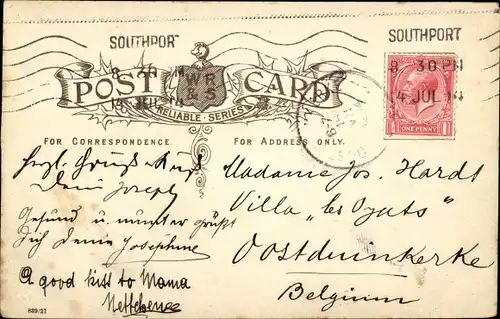 SOUTHPORT
8 30 PM
14 JUL 14
SOUTHPORT
8 30 PM
14 JUL 14
POST CARD
W R & S
RELIABLE SERIES
ONE PENNY
FOR CORRESPONDENCE.
FOR ADDRESS ONLY.
Herzl. Gruß u. Kuß
Dein Joseph
Gesund u. munter grüßt
Dich Deine Josephine
A good kiss to Mama
Madame Jos. Hardt
Villa „les
Oostduinkerke
Belgium
689/21